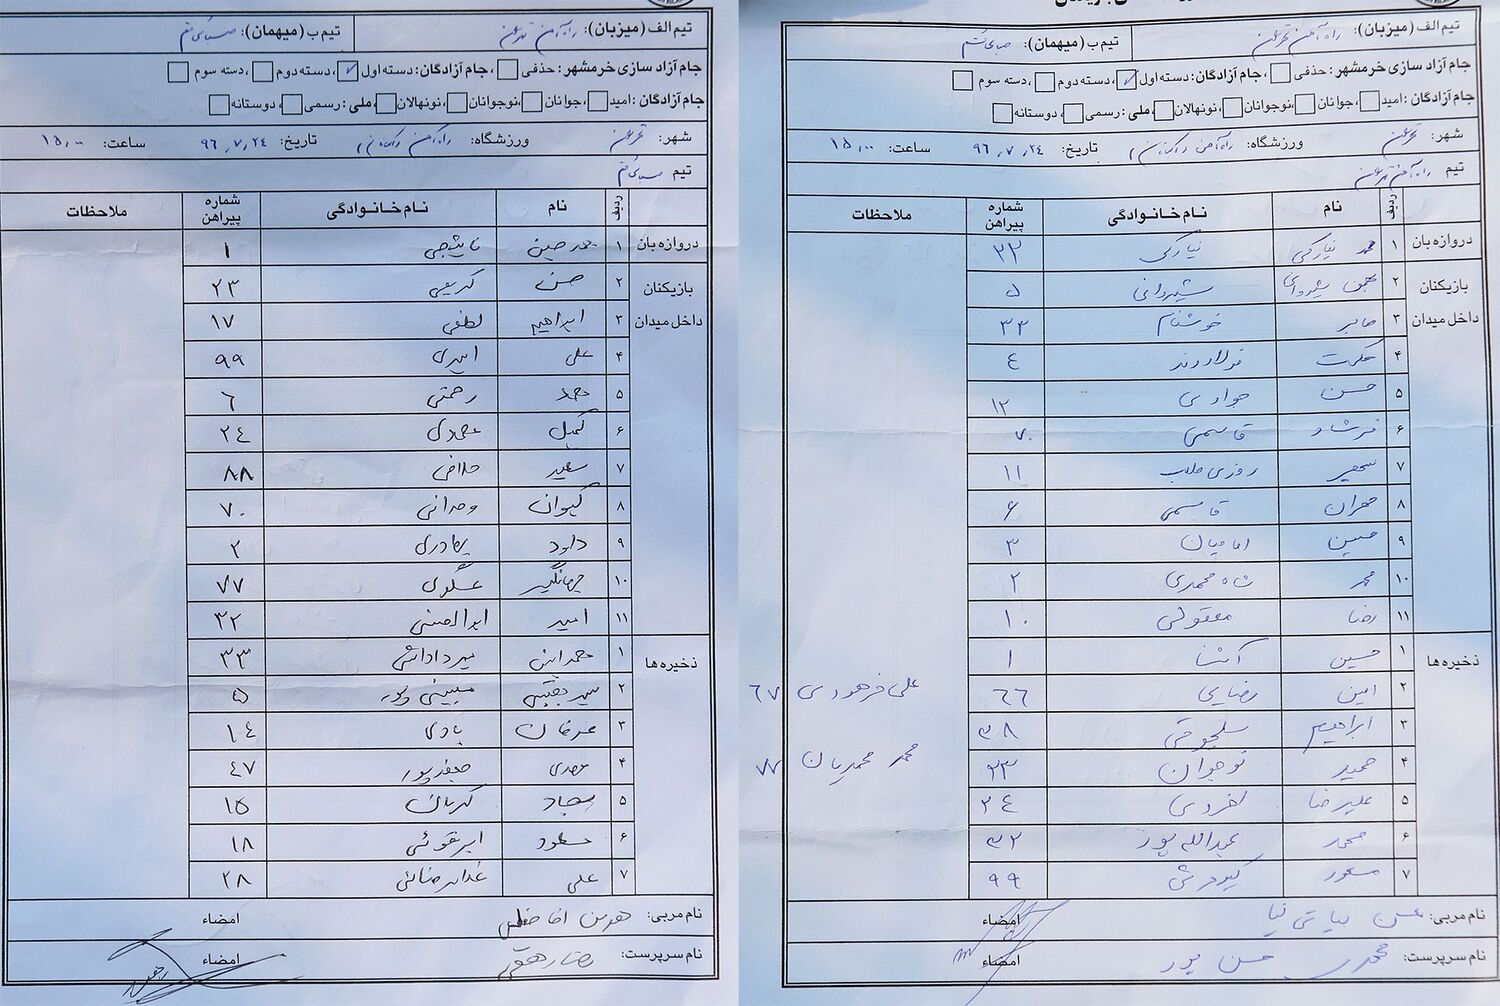 تیم الف (میزبان): راه آهن تهران تیم ب (میهمان): صبای قم
جام آزاد سازی خرمشهر: حذفی ، جام آزادگان: دسته اول ✓ ، دسته دوم ، دسته سوم
جام آزادگان: امید ، جوانان ، نوجوانان ، نونهالان ، ملی: رسمی ، دوستانه
شهر: تهران ورزشگاه: راه آهن تاریخ: ۹۶,۷,۲۴ ساعت: ۱۵,۰۰
تیم راه آهن تهران
ردیف نام نام خانوادگی شماره پیراهن ملاحظات
دروازه بان ۱ نیارکی ۳۳
بازیکنان ۲ شیروانی ۵
داخل میدان ۳ صابر خوشنام ۳۳
۴ فولادوند ۴
۵ حسن جوادی ۱۲
۶ فرشاد قاسمی ۷۰
۷ روزی طلب ۱۱
۸ مهران قاسمی ۶
۹ حسین امامیان ۳
۱۰ محمد شاه محمدی ۲
۱۱ رضا معقولی ۱۰
ذخیره ها ۱ حسین آشنا ۱
۲ امین رضایی ۶۶ علی فرهودی ۶۷
۳ ابراهیم سلجوقی ۳۸
۴ حمید نوجوان ۲۳ محمد محمدیان ۷۷
۵ علیرضا ۲۴
۶ محمد عبدالله پور ۳۲
۷ مسعود کیودرثی ۹۹
نام مربی: محسن بیاتی نیا امضاء
نام سرپرست: محمدی حسن پور امضاء
تیم الف (میزبان): راه آهن تهران تیم ب (میهمان): صبای قم
جام آزاد سازی خرمشهر: حذفی ، جام آزادگان: دسته اول ✓ ، دسته دوم ، دسته سوم
جام آزادگان: امید ، جوانان ، نوجوانان ، نونهالان ، ملی: رسمی ، دوستانه
شهر: تهران ورزشگاه: راه آهن تاریخ: ۹۶,۷,۲۴ ساعت: ۱۵,۰۰
تیم صبای قم
ردیف نام نام خانوادگی شماره پیراهن ملاحظات
دروازه بان ۱ محمد حسین ۱
بازیکنان ۲ حسن کریمی ۲۳
داخل میدان ۳ ابراهیم لطفی ۱۷
۴ علی امیری ۹۹
۵ حمد رحمتی ۶
۶ کمیل ۲۴
۷ سعید ۸۸
۸ کیوان وحدانی ۷۰
۹ داود بهادری ۲
۱۰ جهانگیر عسگری ۷۷
۱۱ امیر ابوالحسنی ۳۲
ذخیره ها ۱ محمد امین میردادشی ۳۳
۲ مبینی پور ۵
۳ عرفان بادی ۱۴
۴ مهدی جعفرپور ۴۷
۵ سجاد ۱۵
۶ مسعود ابرقوئی ۱۸
۷ علی غلامرضائی ۲۸
نام مربی: هومن افاضلی امضاء
نام سرپرست: رضا رهقی امضاء